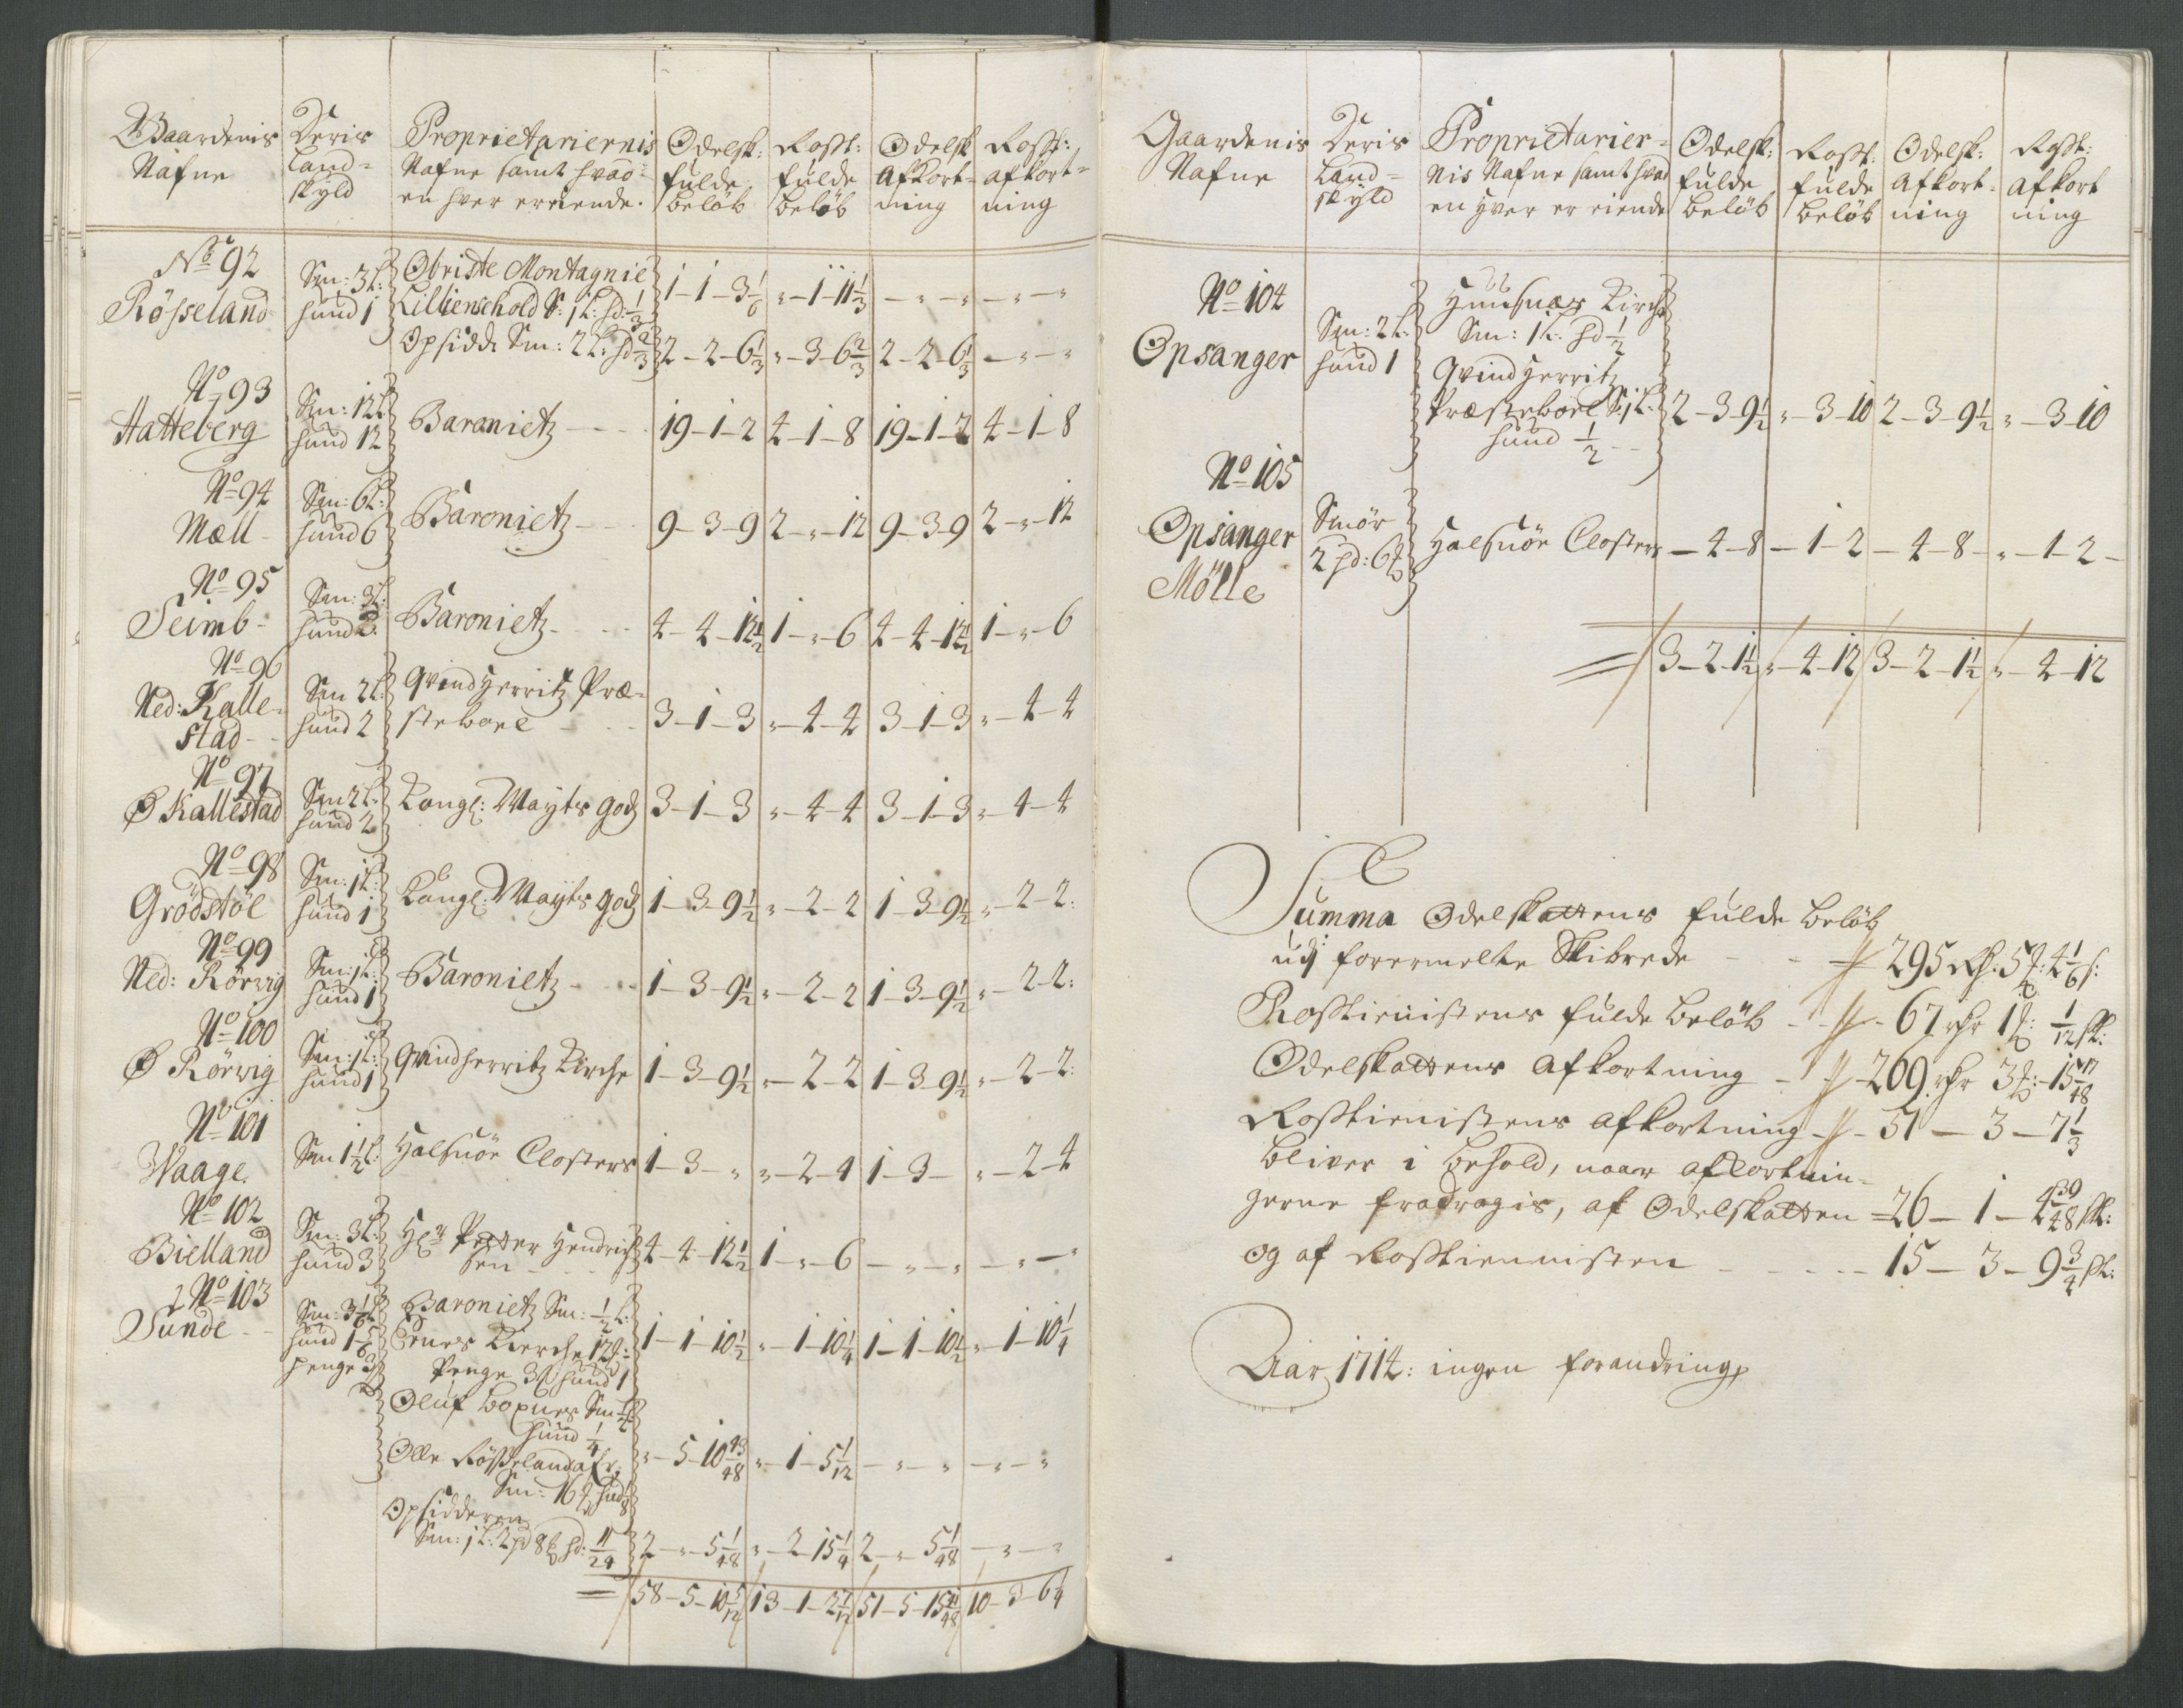 Gaardenis Nafne | Deris Land= skyld | Proprietariernis Nafne samt hvad en hver er eiende. | Odelsk: fulde beløb | Rosst: fulde beløb | Odelsk Afkort= ning | Rosst: afkort= ning
No 92
Røsseland | Sm: 3 L: hund 1 | Obriste Montagnie Lillienschold S: 1 L: hd: 1/3 | 1-1-3 1/6 | "-1-11 1/3 | -"-" | -"-"
Opsidd: Sm: 2 L: hd 2/3 | 2-2-6 1/3 | "-3-6 2/3 | 2-2-6 1/3 | -"-"
No 93
Hatteberg | Sm: 12 L: hund 12 | Baronietz | 19-1-2 | 4-1-8 | 19-1-2 | 4-1-8
No 94
Mæll | Sm: 6 L: hund 6 | Baronietz | 9-3-9 | 2-"-12 | 9-3-9 | 2-"-12
No 95
Seimb | Sm: 3 L: hund 3. | Baronietz | 4-4-12 1/2 | 1-"-6 | 4-4-12 1/2 | 1-"-6
No 96
Ned: Kalle= stad | Sm 2 L: hund 2 | Qvindherritz Præ= steboel | 3-1-3 | "-4-4 | 3-1-3 | "-4-4
No 97
Ø Kallestad | Sm 2 L: hund 2 | Kongl: Mayts godz | 3-1-3 | "-4-4 | 3-1-3 | "-4-4
No 98
Grødstøl | Sm: 1 L: hund 1 | Kongl: Mayts godz | 1-3-9 1/2 | "-2-2 | 1-3-9 1/2 | "-2-2:
No 99
Ned: Rørvig | Sm: 1 L: hund 1 | Baronietz | 1-3-9 1/2 | "-2-2 | 1-3-9 1/2 | "-2-2:
No 100
Ø Rørvig | Sm: 1 L: hund 1 | Qvindherritz Kirche | 1-3-9 1/2 | "-2-2 | 1-3-9 1/2 | "-2-2:
No 101
Waage. | Sm 1 1/2 L: | Halsnøe Closters | 1-3-" | "-2-4 | 1-3- | "-2-4
No 102
Bielland | Sm: 3 L: hund 3 | Hr Petter Hendrich sen | 4-4-12 1/2 | 1-"-6 | -"-" | -"-"
No 103
Sunde | Sm: 3 1/6 hund 1 5/6 penge 3 | Baronietz Sm: 1/2 L:
Enes Kierche 12
Penge 3 hund 1 | 1-1-10 1/2 | "-1-10 1/4 | 1-1-10 1/2 | "-1-10 1/4
Oluf Sm
hund 1/4
Olle Røsseland
Sm: 16 hund 1/8 | "-5-10 43/48 | "-1-5 1/12 | -"-" | -"-"
Opsidderen
Sm: 1 L: 2 pd 8 hd: 11/24 | 2-"-5 1/48 | "-2-15 1/4 | 2-"-5 1/48 | -"-"
58-5-10 5/12 | 13-1-2 1/12 | 51-5-15 | 10-3-6 1/4
Gaardenis Nafne | Deris Land= skyld | Proprietarier= nis Nafne samt hvad en hver er eiende | Odelsk: fulde beløb | Rosst: fulde beløb | Odelsk: Afkort= ning | Rosst: afkort ning
No 104
Opsanger | Sm: 2 L: hund 1 | Huusnæs Kirche
Sm: 1 L: hd 1/2
Qvindherritz
Præsteboel S: 1 L:
hund 1/2 | 2-3-9 1/2 | "-3-10 | 2-3-9 1/2 | "-3-10
No 105
Opsanger Mølle | Smør 2 pd: 6 | Halsnøe Closters | -4-8 | -1-2 | -4-8 | "-1-2-
3-2-1 1/2 | "-4-12 | 3-2-1 1/2 | "-4-12
Summa Odelskattens fulde beløb
udj forermelte Skibrede 295 Rd: 5 : 4 1/6 s:
Rosstienistens fulde beløb 67 rdr 1 : 1/12 sk:
Odelskattens Afkortning 269 rdr 3 : 15 17/48
Rosstienistens afkortning 51 - 3 - 7 1/3
bliver i behold, naar afkortnin=
gerne fradragis, af Odelskatten = 26 - 1 - 4 39/48 sk:
og af Rosstiennisten 15 - 3 - 9 3/4 sk:
Aar 1714: ingen forandring